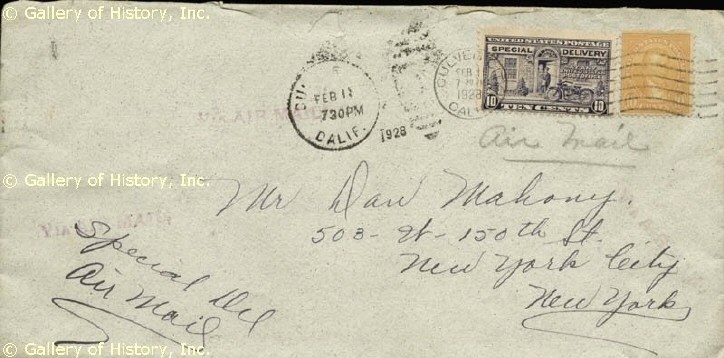 © Gallery of History, Inc.
UNITED STATES POSTAGE
SPECIAL DELIVERY
10 TEN CENTS 10
CULVER
FEB 1
1928
CAL
FEB 11
730PM
CALIF.
1928
AIR MAIL
Air Mail
© Gallery of History, Inc.
Mr Dan Mahony.
503-W-150th St.
New York City
New York
Special Del
Air Mail
© Gallery of History, Inc.